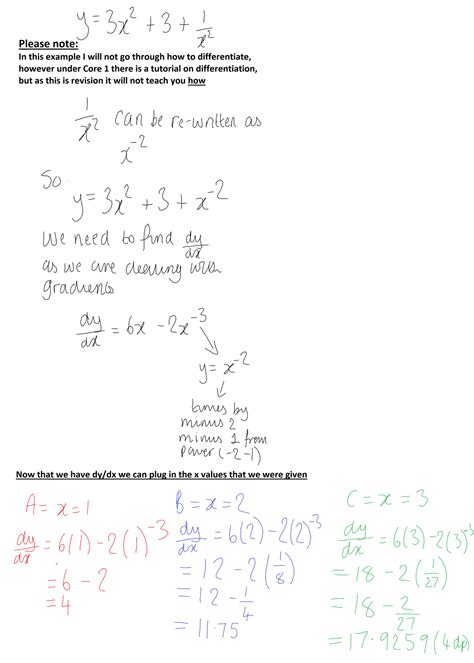 y = 3x² + 3 + 1/x²
Please note:
In this example I will not go through how to differentiate,
however under Core 1 there is a tutorial on differentiation,
but as this is revision it will not teach you how
1/x² can be re-written as
x⁻²
So
y = 3x² + 3 + x⁻²
We need to find dy/dx
as we are dealing with
gradients
dy/dx = 6x - 2x⁻³
y = x⁻²
times by
minus 2
minus 1 from
power (-2-1)
Now that we have dy/dx we can plug in the x values that we were given
A = x = 1
dy/dx = 6(1) - 2(1)⁻³
= 6 - 2
= 4
B = x = 2
dy/dx = 6(2) - 2(2)⁻³
= 12 - 2(1/8)
= 12 - 1/4
= 11.75
C = x = 3
dy/dx = 6(3) - 2(3)⁻³
= 18 - 2(1/27)
= 18 - 2/27
= 17.9259 (4dp)